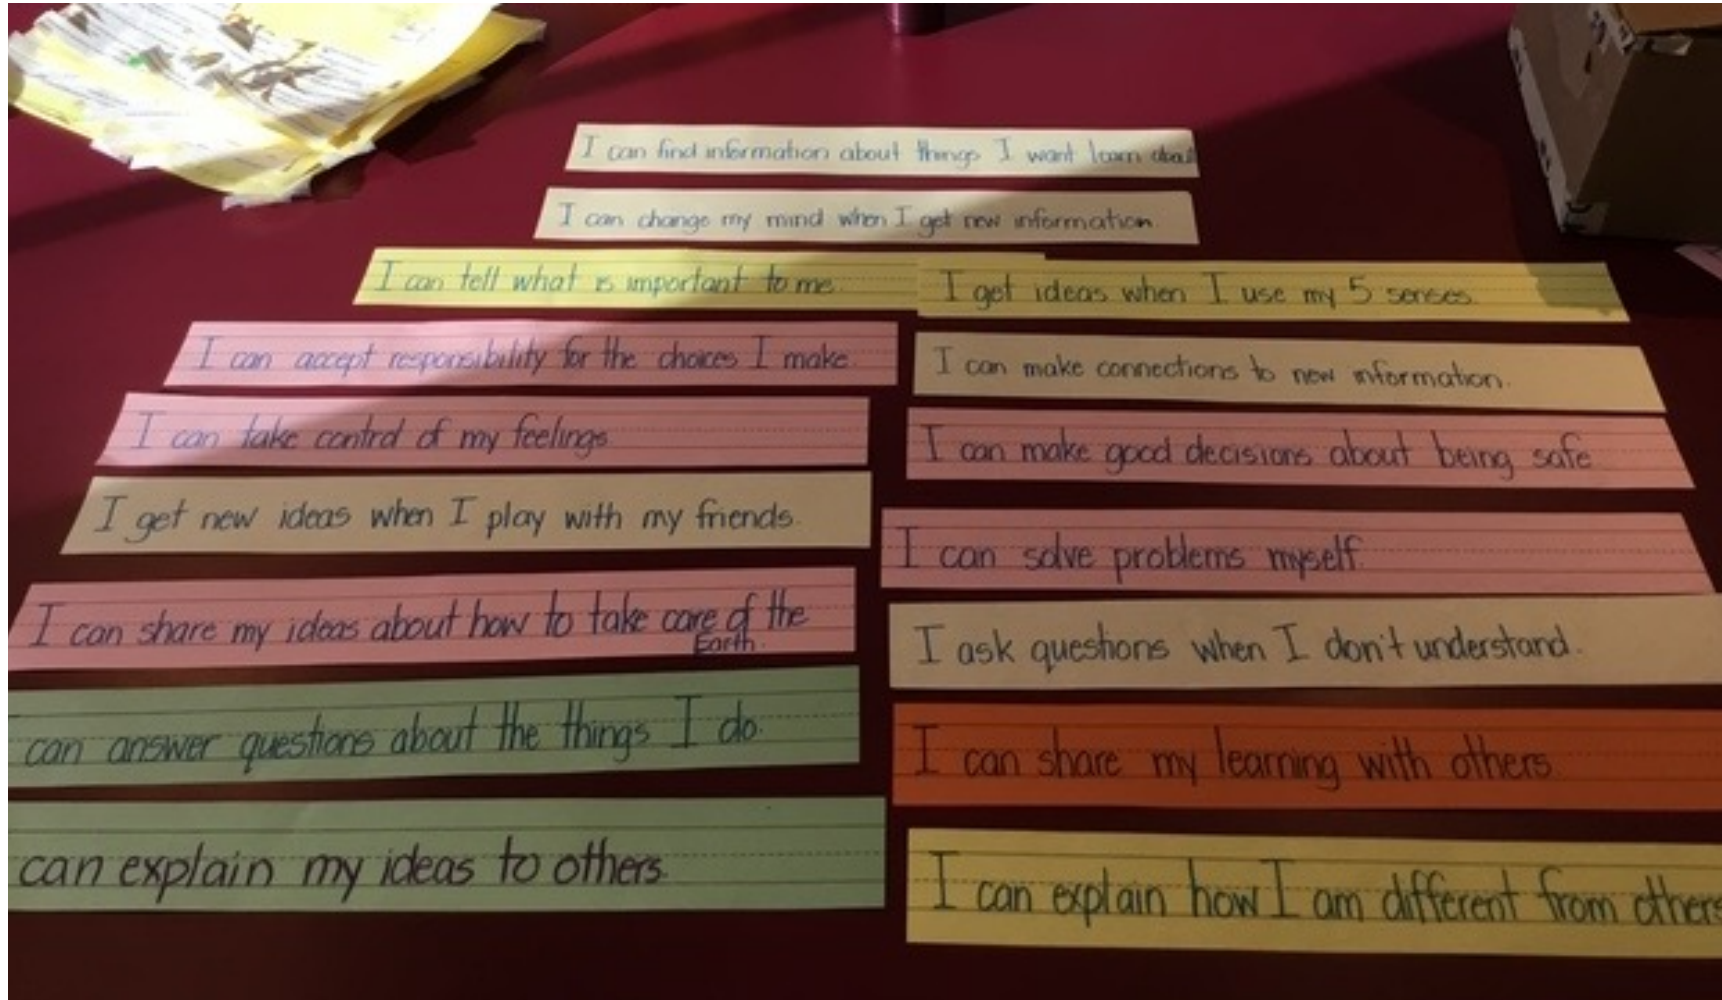 I can find information about things I want learn about
I can change my mind when I get new information.
I can tell what is important to me.
I can accept responsibility for the choices I make.
I can take control of my feelings
I get new ideas when I play with my friends.
I can share my ideas about how to take care of the
Earth.
can answer questions about the things I do.
can explain my ideas to others.
I get ideas when I use my 5 senses.
I can make connections to new information.
I can make good decisions about being safe
I can solve problems myself.
I ask questions when I don't understand.
I can share my learning with others.
I can explain how I am different from others